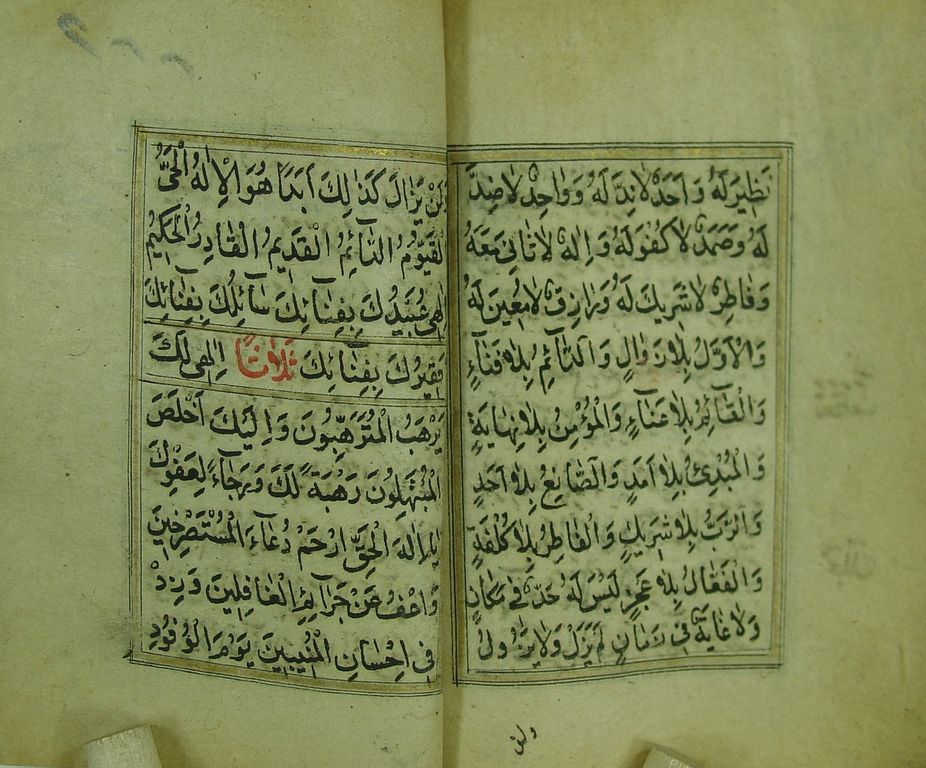 نَظِيرَ لَهُ وَ اَحَدٌ لَا نِدَّ لَهُ وَ وَاحِدٌ لَا ضِدَّ
لَهُ وَ صَمَدٌ لَا كُفْوَ لَهُ وَ اِلٰهٌ لَا ثَانِيَ مَعَهُ
وَ فَاطِرٌ لَا شَرِيكَ لَهُ وَ رَازِقٌ لَا مُعِينَ لَهُ
وَ الْاَوَّلُ بِلَا زَوَالٍ وَ الدَّآئِمُ بِلَا فَنَآءٍ
وَ الْقَآئِمُ بِلَا عَنَآءٍ وَ الْمُؤْمِنُ بِلَا نِهَايَةٍ
وَ الْمُبْدِئُ بِلَا اَمَدٍ وَ الصَّانِعُ بِلَا اَحَدٍ
وَ الرَّبُّ بِلَا شَرِيكٍ وَ الْفَاطِرُ بِلَا كُلْفَةٍ
وَ الْفَعَّالُ بِلَا عَجْزٍ لَيْسَ لَهُ حَدٌّ فِي مَكَانٍ
وَ لَا غَايَةٌ فِي زَمَانٍ لَمْ يَزَلْ وَ لَا يَزُولُ
وَ لَنْ
وَ لَنْ يَزَالَ كَذٰلِكَ اَبَدًا هُوَ الْاِلٰهُ الْحَيُّ
الْقَيُّومُ الدَّآئِمُ الْقَدِيمُ الْقَادِرُ الْحَكِيمُ
اِلٰهِي عُبَيْدُكَ بِفِنَآئِكَ سَآئِلُكَ بِفِنَآئِكَ
فَقِيرُكَ بِفِنَآئِكَ ثَلَاثًا اِلٰهِي لَكَ
يَرْهَبُ الْمُتَرَهِّبُونَ وَ اِلَيْكَ اَخْلَصَ
الْمُبْتَهِلُونَ رَهْبَةً لَكَ وَ رَجَآءً لِعَفْوِكَ
يَا اِلٰهَ الْحَقِّ ارْحَمْ دُعَآءَ الْمُسْتَصْرِخِينَ
وَ اعْفُ عَنْ جَرَآئِمِ الْغَافِلِينَ وَ زِدْ
فِي اِحْسَانِ الْمُنِيبِينَ يَوْمَ الْوُفُودِ